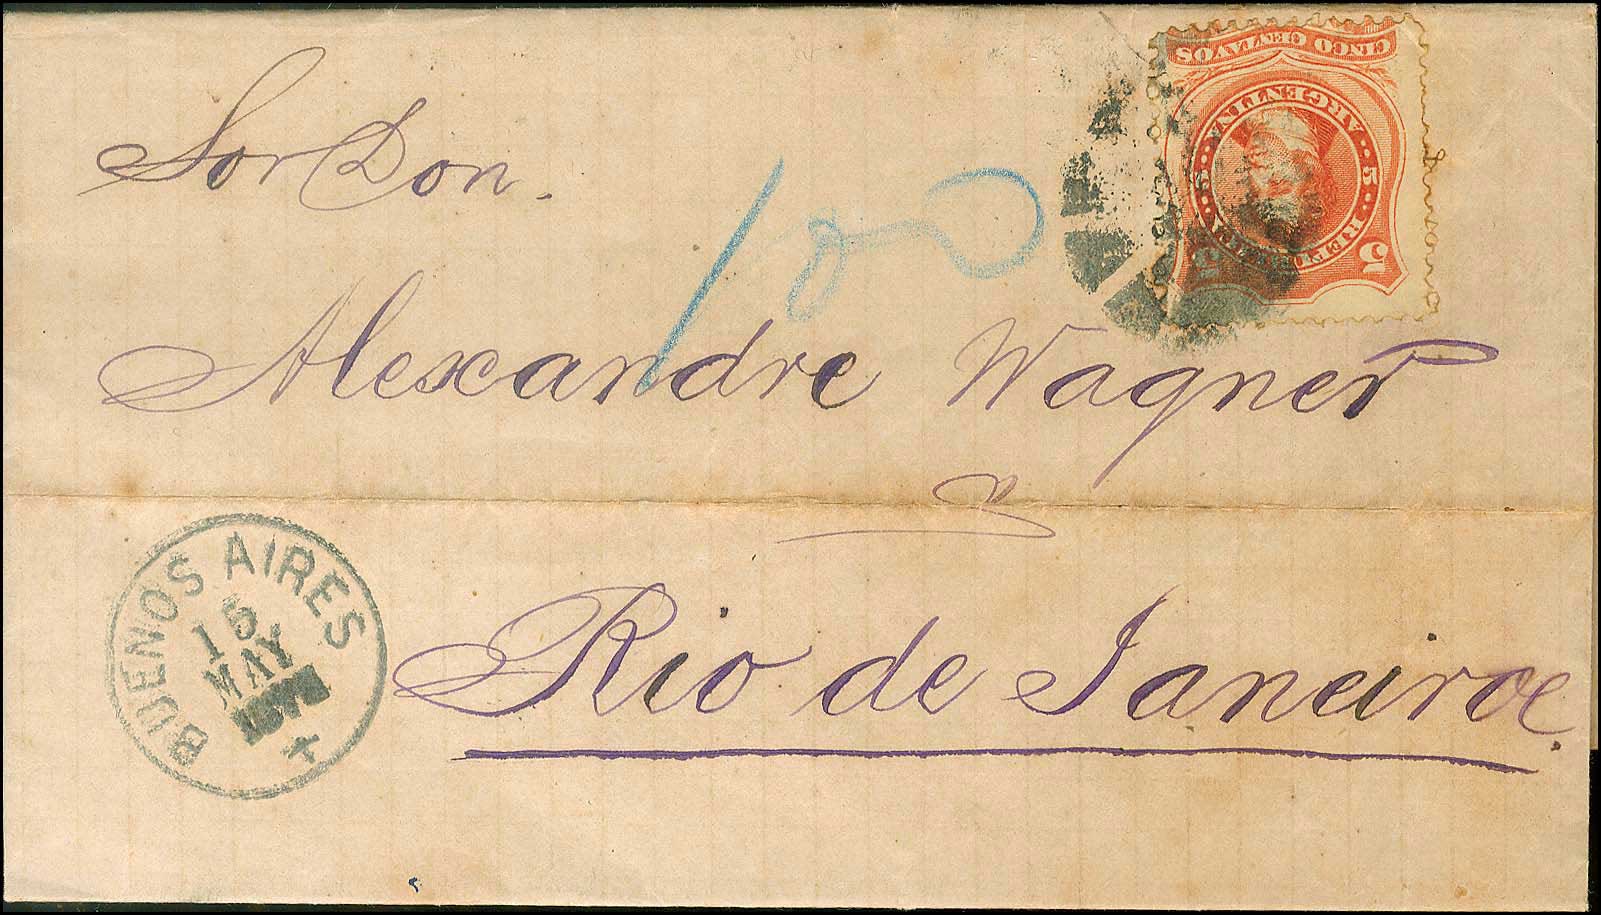 CINCO CENTAVOS
REPUBLICA ARGENTINA
5 5
5
Sor Don.
100
Alexandre Wagner
Rio de Janeiroe.
BUENOS AIRES
15
MAY